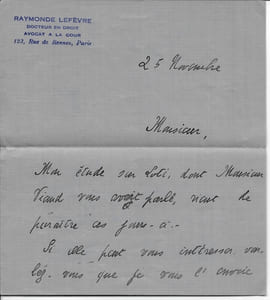 RAYMONDE LEFÈVRE
DOCTEUR EN DROIT
AVOCAT A LA COUR
123, Rue de Rennes, Paris
25 Novembre
Monsieur,
Mon étude sur Loti, dont Monsieur
Viaud vous avait parlé, vient de
paraître ces jours-ci.
Si elle peut vous intéresser vou-
lez-vous que je vous l'envoie